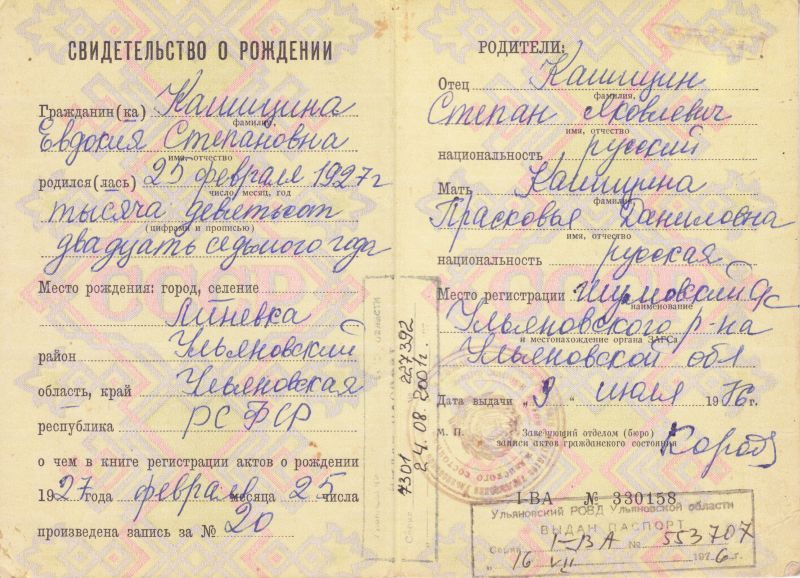 СВИДЕТЕЛЬСТВО О РОЖДЕНИИ
Гражданин(ка) Кашицина
фамилия,
Евдокия Степановна
имя, отчество
родился(лась) 25 февраля 1927 г
число, месяц, год
тысяча девятьсот
(цифрами и прописью)
двадцать седьмого года
Место рождения: город, селение
район Ульяновский
область, край Ульяновская
республика РСФСР
о чем в книге регистрации актов о рождении
1927 года февраля месяца 25 числа
произведена запись за № 20
РОДИТЕЛИ:
Отец Кашицин
фамилия,
Степан Яковлевич
имя, отчество
национальность русский
Мать Кашицина
фамилия,
Прасковья Даниловна
имя, отчество
национальность русская
Место регистрации Шумовский с/с
наименование
Ульяновского р-на
и местонахождение органа ЗАГСа
Ульяновской обл
Дата выдачи „9" июля 1976 г.
М. П. Заведующий отделом (бюро)
записи актов гражданского состояния
I-ВА № 330158
Ульяновский РОВД Ульяновской области
ВЫДАН ПАСПОРТ
Серия I-ВА № 553707
"16" VII 1976 г.
7301 227392
24.08.2001г.